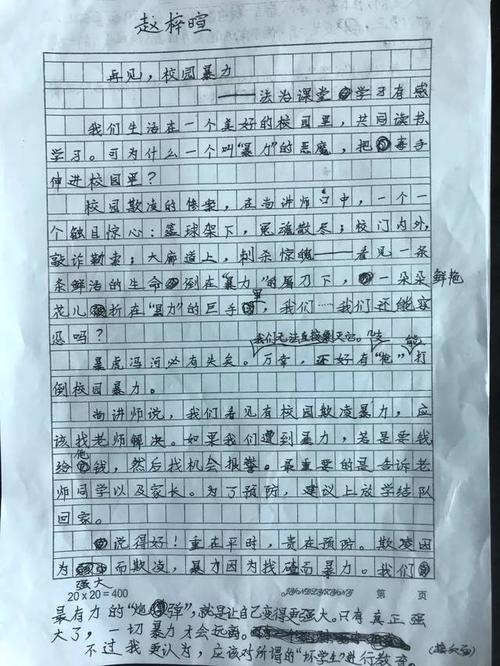 赵梓暄
再见，校园暴力
——法治课堂学习有感
我们生活在一个美好的校园里，共同读书
学习。可为什么一个叫“暴力”的恶魔，把毒手
伸进校园里？
校园欺凌的惨案，在尚讲师口中，一个一
个触目惊心：篮球架下，魂散尽；校门内外，
敲诈勒索；大廊道上，刺杀惊魄——看见一条
条鲜活的生命倒在“暴力”的屠刀下，一朵朵鲜艳
花儿折在“暴力”的巨手里，我们……我们还能容
忍吗？
我们无法直接
暴虎冯河必有失矣。万幸，还好有“炮”能打
倒校园暴力。
尚讲师说，我们看见有校园欺凌暴力，应
该找老师解决。如果我们遭到暴力，若是要钱
给他钱，然后找机会报警。最重要的是告诉老
师同学以及家长。为了预防，建议上放学结队
回家。
说得好！重在平时，贵在预防。欺凌因
为而欺凌，暴力因为找碴而暴力。我们
强大
20×20=400
第 页
最有力的“炮弹”，就是让自己变得更强大。只有真正强
大了，一切暴力才会远离。
不过我更认为，应该对所谓的“坏学生”进行教育